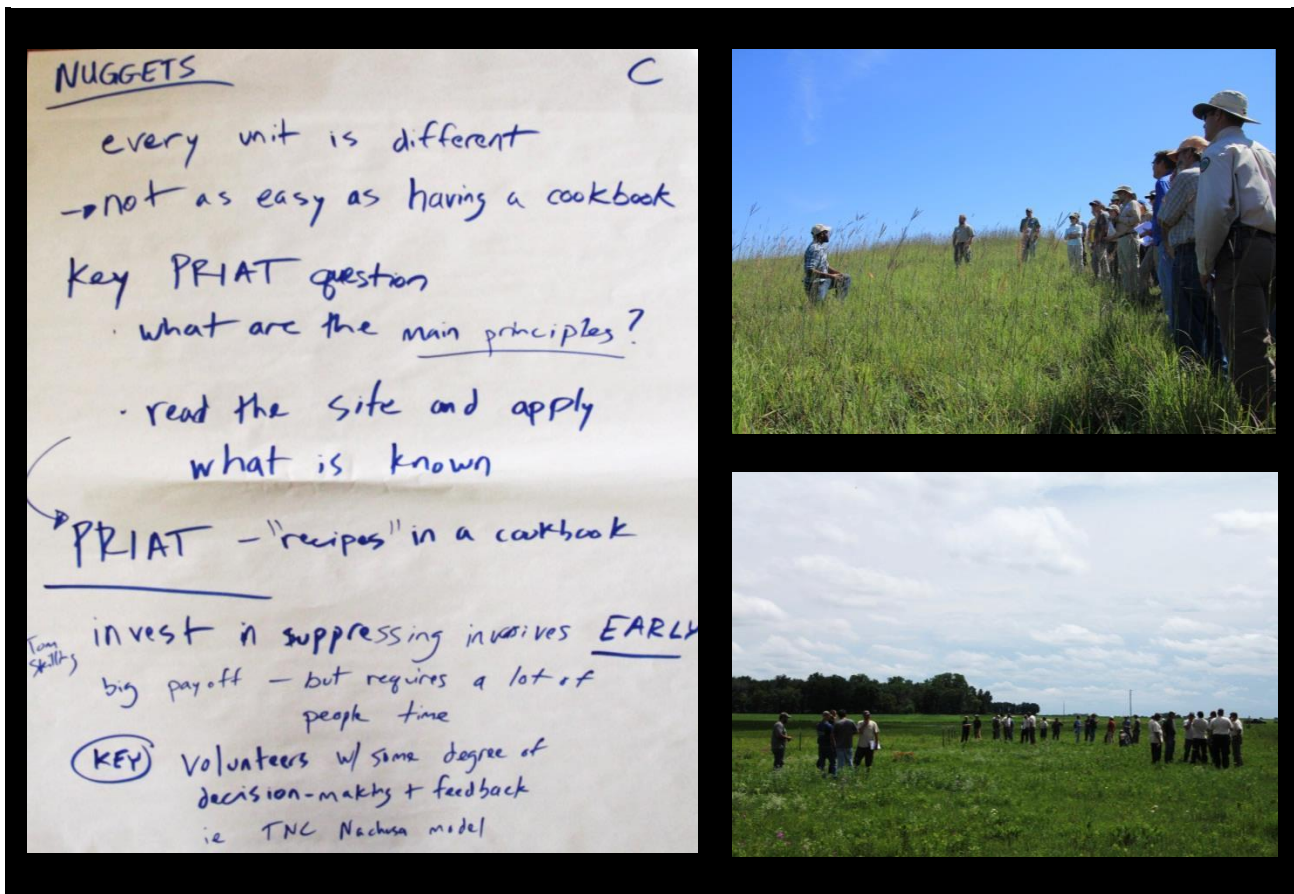 NUGGETS C
every unit is different
→ not as easy as having a cookbook
Key PRIAT question
· what are the main principles?
· read the site and apply
what is known
PRIAT - "recipes" in a cookbook
invest in suppressing invasives EARLY
Tom
big payoff - but requires a lot of
people time
KEY volunteers w/ some degree of
decision-making + feedback
ie TNC Nachusa model